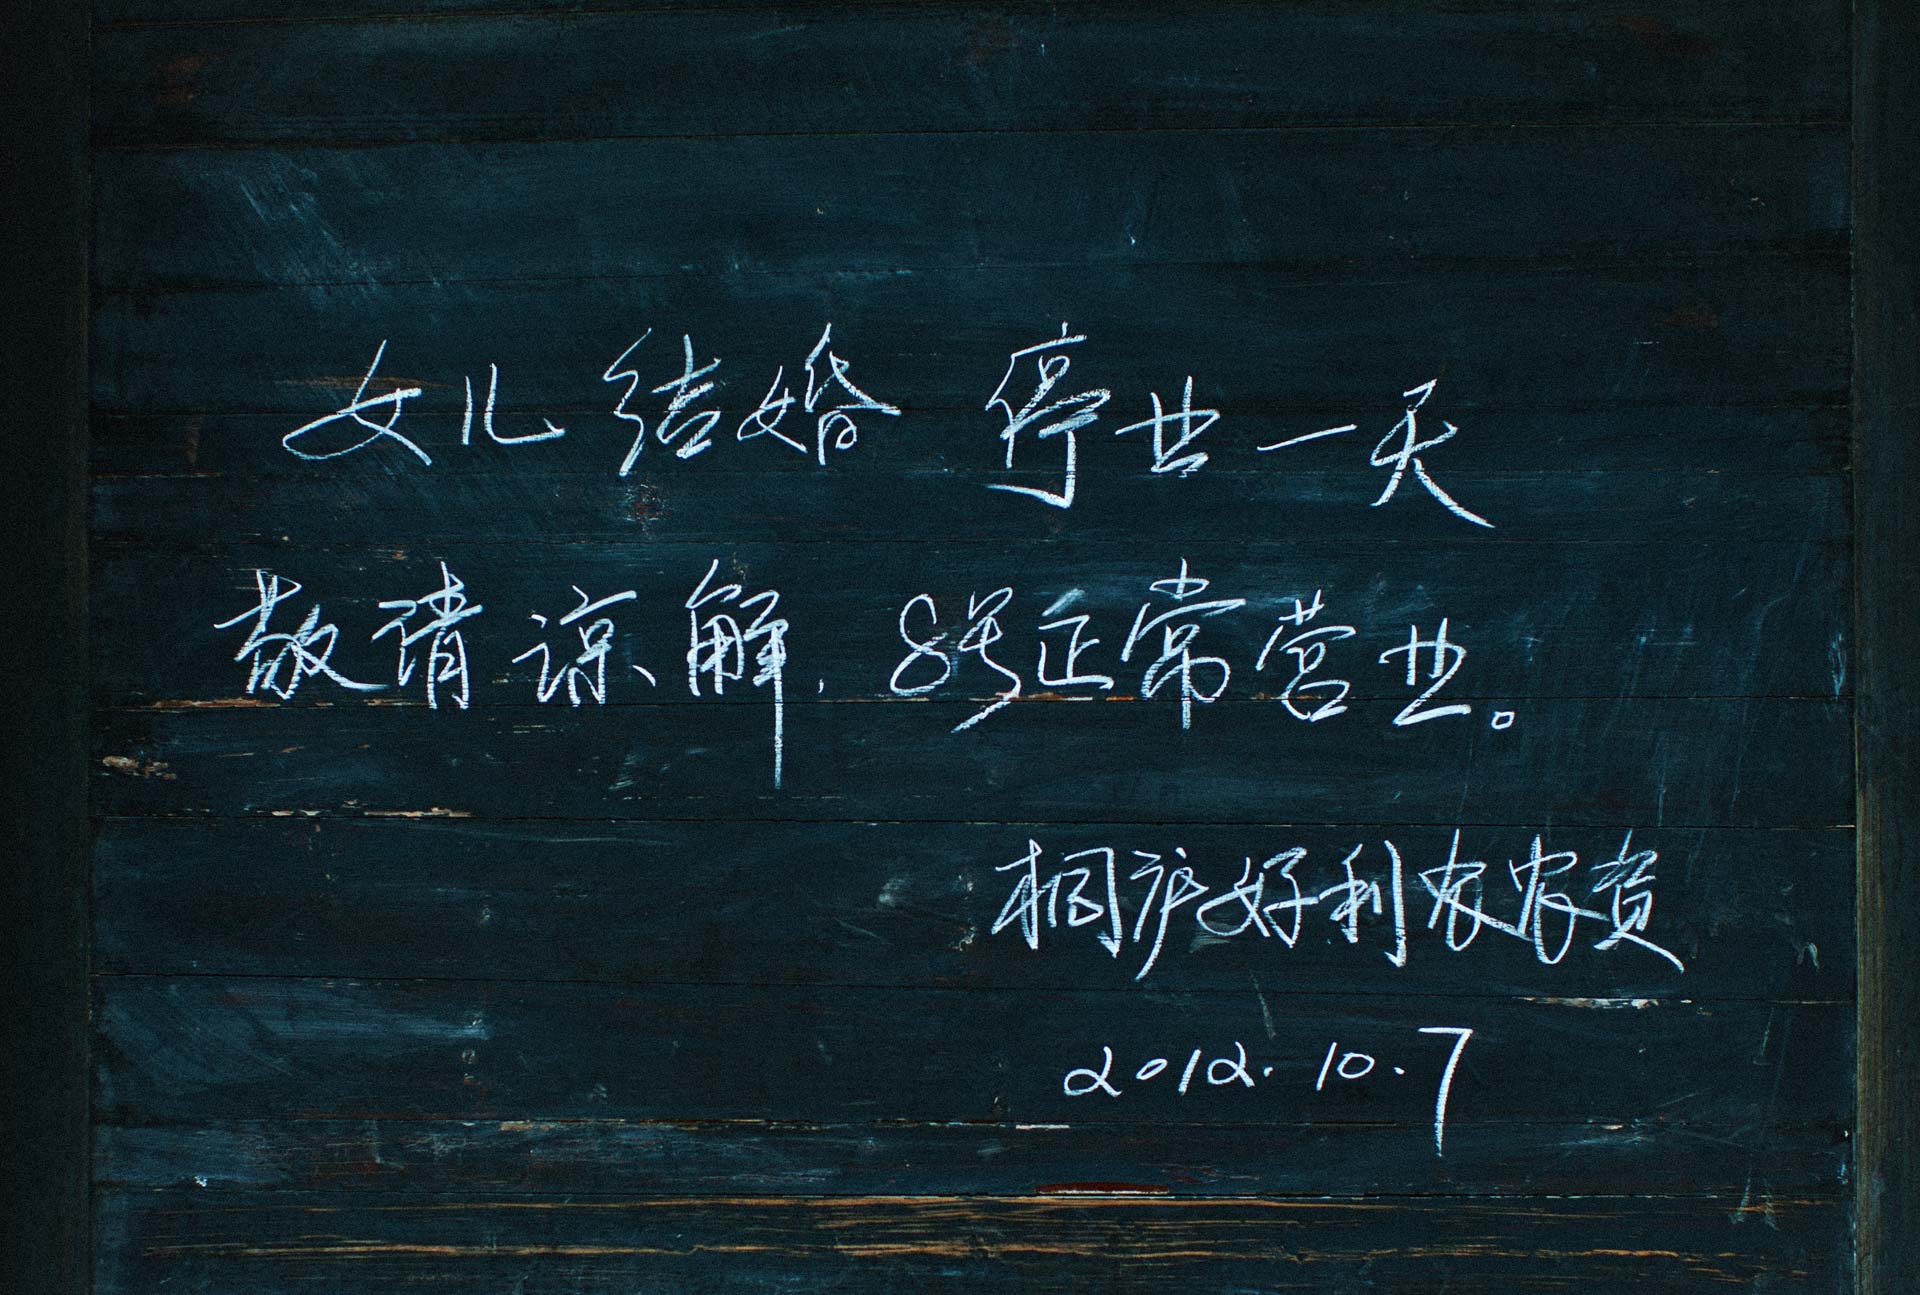 女儿结婚 停业一天
敬请谅解. 8号正常营业。
桐庐好利农农资
2012.10.7